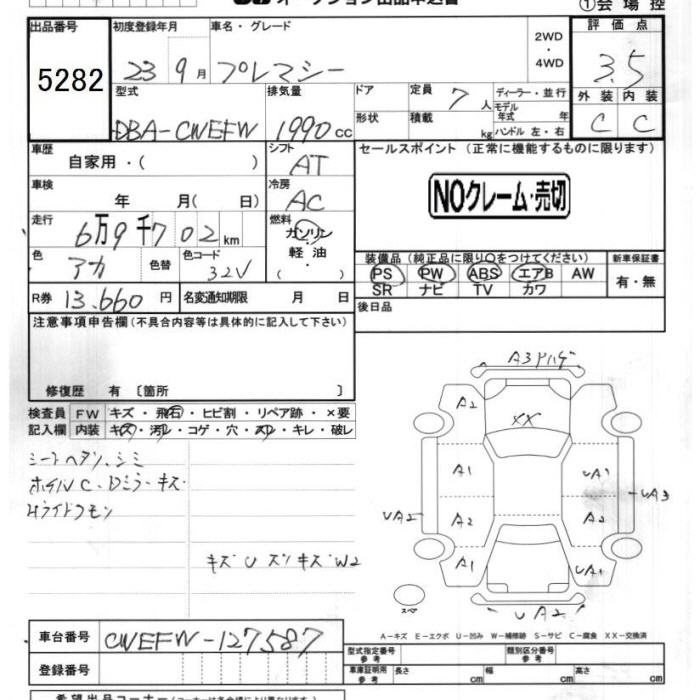 オークション出品申込書
①会場控
出品番号
5282
初度登録年月
23 9月
車名・グレード
プレマシー
2WD
・
4WD
評価点
3.5
外装 内装
C C
型式
DBA-CWEFW
排気量
1990cc
ドア
形状
定員 7人
積載 kg
ディーラー・並行
モデル
年式 年
ハンドル 左・右
車歴
自家用・( )
シフト
AT
セールスポイント (正常に機能するものに限ります)
NOクレーム・売切
車検
年 月( 日)
冷房
AC
走行
6万9千702km
燃料
ガソリン
軽油
( ・ )
色
アカ
色替
色コード
32V
装備品(純正品に限り○をつけてください)
PS PW ABS エアB AW
SR ナビ TV カワ
新車保証書
有・無
R券 13.660円
名変通知期限 月 日
後日品
注意事項申告欄(不具合内容等は具体的に記入して下さい)
修復歴 有 〔箇所 〕
検査員
記入欄
FW キズ・飛石・ヒビ割・リペア跡・×要
内装 キズ・汚レ・コゲ・穴・スレ・キレ・破レ
シートヘタリ、シミ
ホイルC・Dミラーキズ
キズUズリキズW2
A3
A2
XX
A1
UA1
UA3
UA2
A2
A2
A1
UA1
UA2
スペア
A-キズ E-エクボ U-凹ミ W-補修跡 S-サビ C-腐食 XX-交換済
車台番号 CWEFW-127587
登録番号
型式指定番号
参考
類別区分番号
参考
車庫証明用
参考
長さ cm
幅 cm
高さ cm
希望出品コーナー